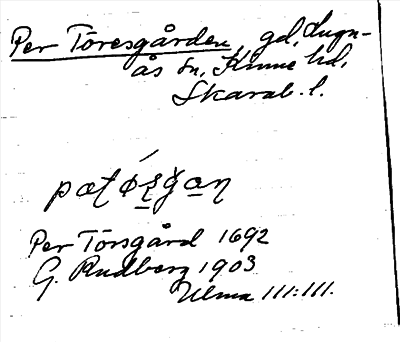 Per Töresgården, gd, Lugn-
ås sn, Kinne hd,
Skarab. l.
pætǿʂg̊an
Per Törsgård 1692
G. Rudberg 1903
Ulma 111:111.